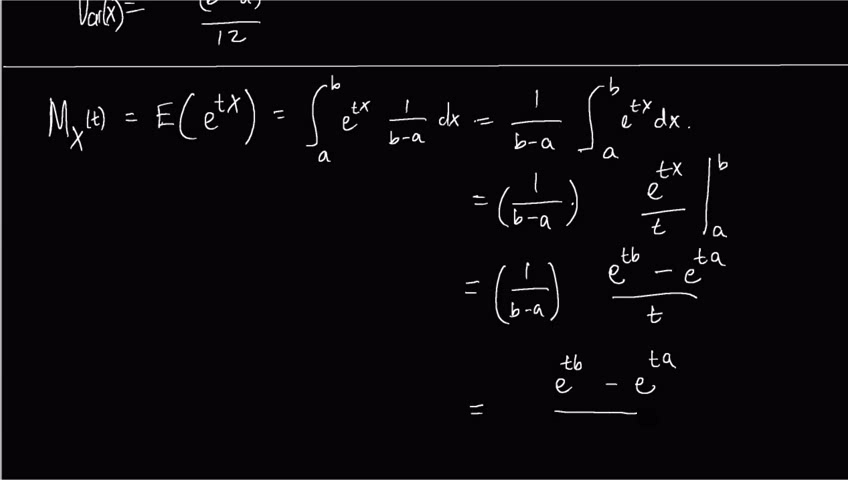 Var(X) = (b-a)² / 12
M_X(t) = E(e^{tX}) = ∫_a^b e^{tx} 1/(b-a) dx = 1/(b-a) ∫_a^b e^{tx} dx.
= (1/(b-a)) e^{tx}/t |_a^b
= (1/(b-a)) (e^{tb} - e^{ta})/t
= e^{tb} - e^{ta}